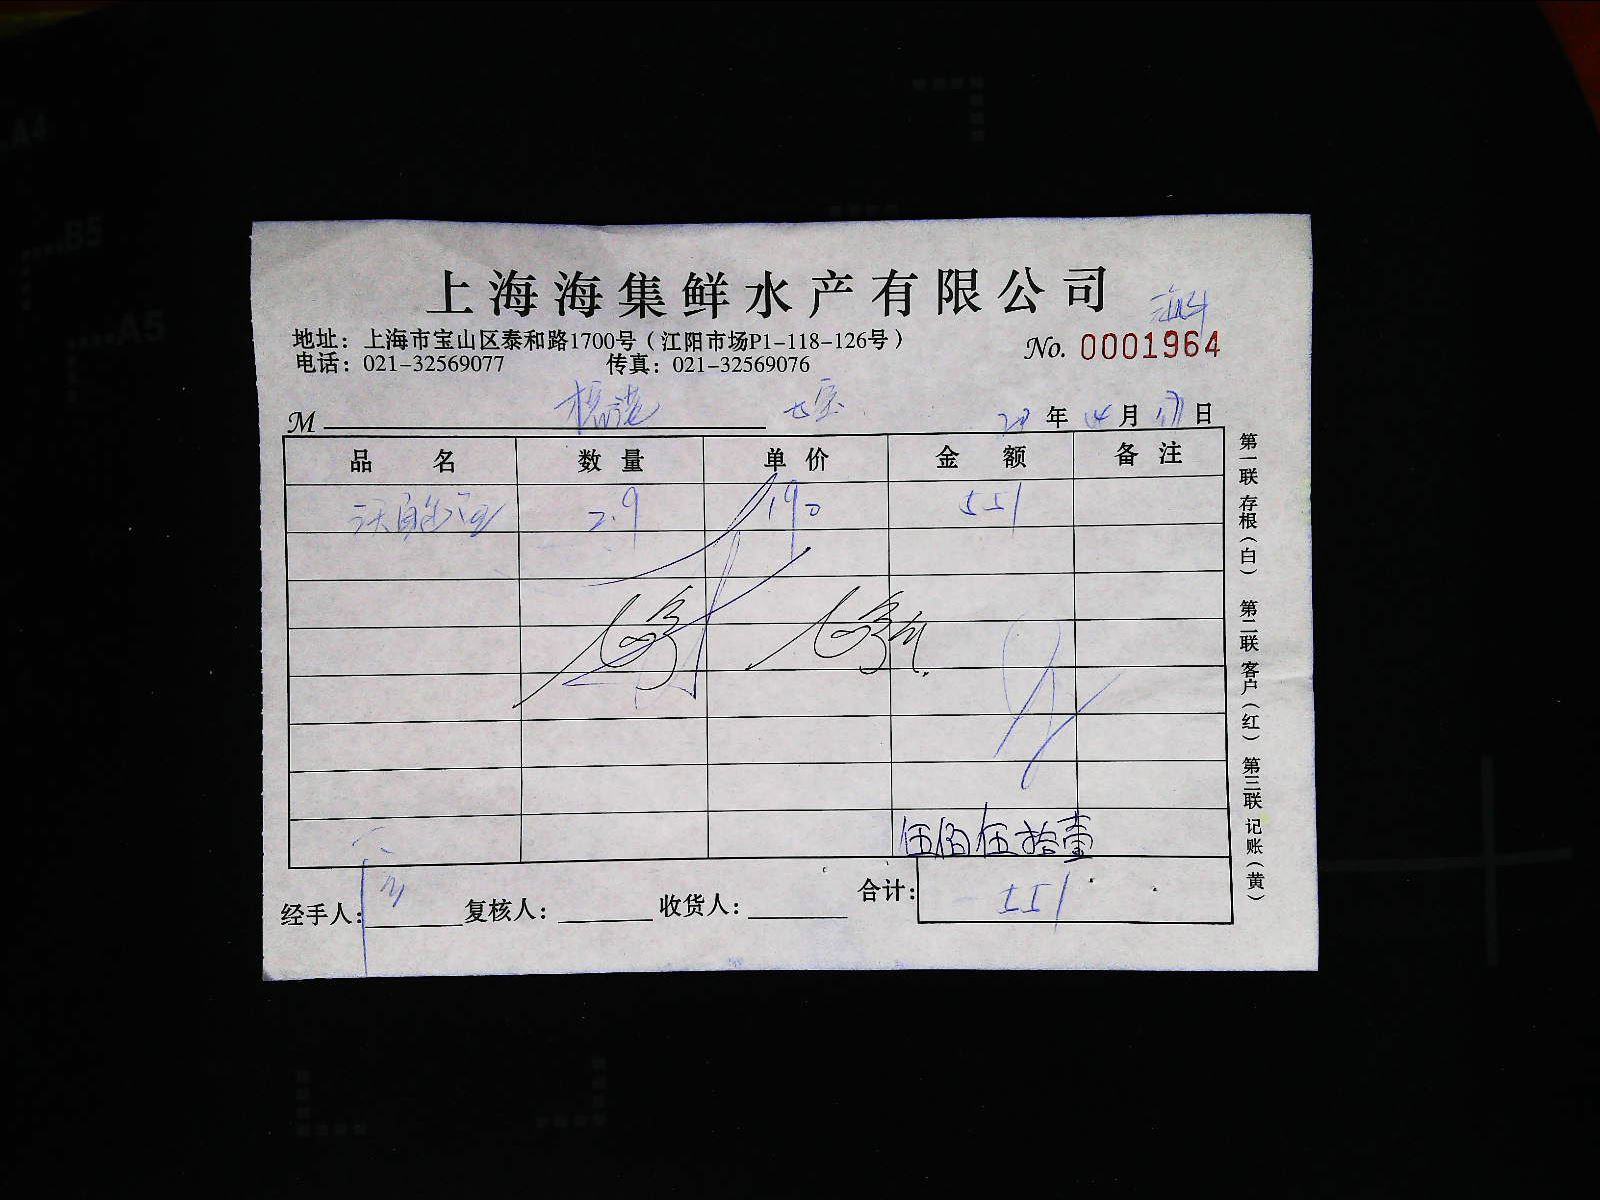 上海海集鲜水产有限公司
地址：上海市宝山区泰和路1700号（江阳市场P1-118-126号）
No. 0001964
电话：021-32569077 传真：021-32569076
M 七宝
年 月 日
品 名 数 量 单 价 金 额 备 注
2.9 190 551
伍佰伍拾壹
合计： 551
经手人： 复核人： 收货人：
第一联 存根（白） 第二联 客户（红） 第三联 记账（黄）
A4
B5
A5